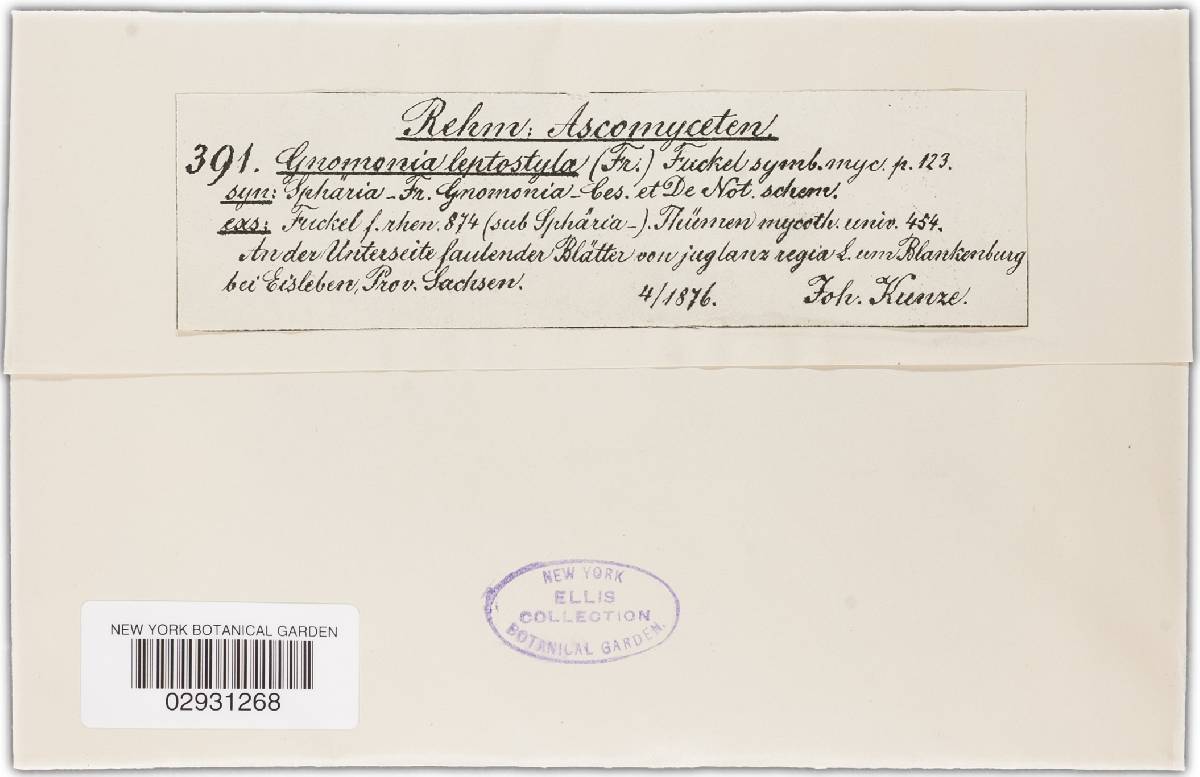 Rehm: Ascomyceten.
391. Gnomonia leptostyla (Fr.) Fuckel symb. myc. p. 123.
syn: Sphäria – Fr. Gnomonia – Ces. et De Not. schem.
exs: Fuckel f. rhen. 874 (sub Sphäria –). Thümen mycoth. univ. 454.
An der Unterseite faulender Blätter von juglanz regia L. um Blankenburg
bei Eisleben, Prov. Sachsen.
4/1876. Joh. Kunze.
NEW YORK
ELLIS
COLLECTION
BOTANICAL GARDEN.
NEW YORK BOTANICAL GARDEN
02931268